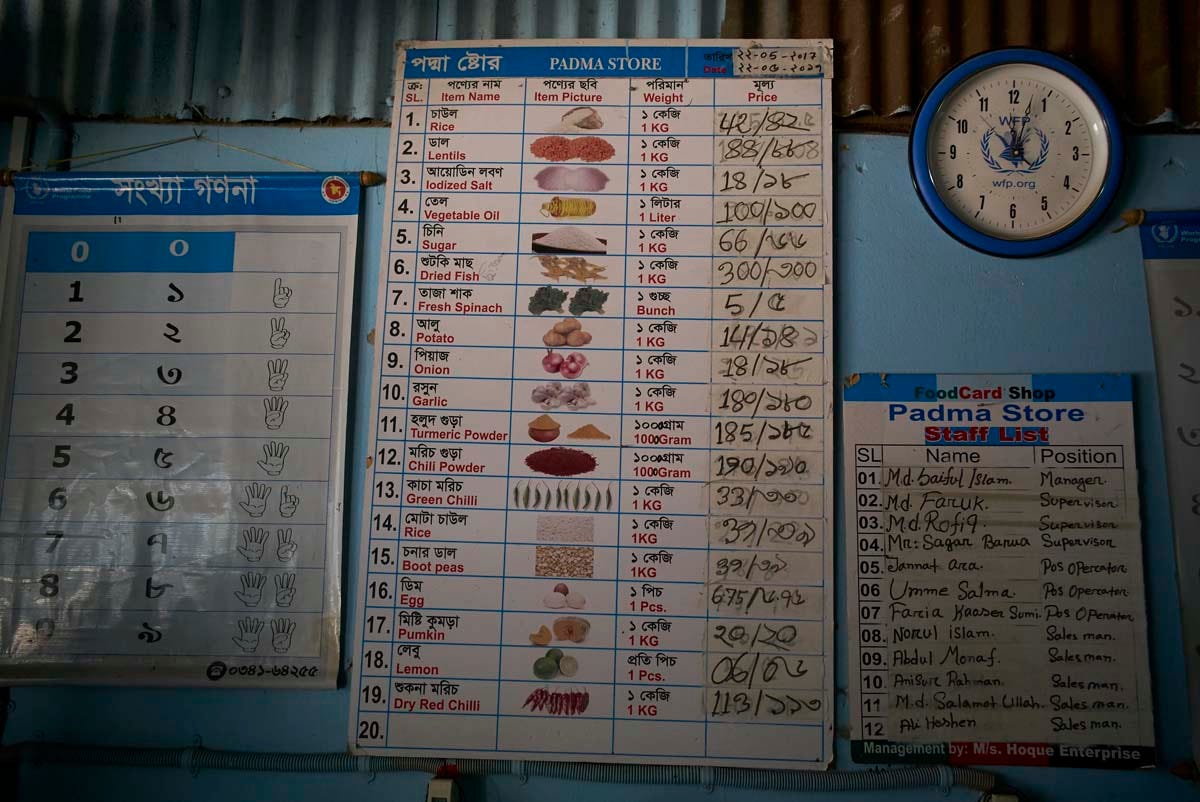 সংখ্যা গণনা
0 ০
1 ১
2 ২
3 ৩
4 ৪
5 ৫
6 ৬
7 ৭
8 ৮
৯
০৩৪১-৬৪২৫৫
পদ্মা ষ্টোর PADMA STORE তারিখ ২২-০৫-২০১৭
Date
ক্র: পণ্যের নাম পণ্যের ছবি পরিমান মূল্য
SL. Item Name Item Picture Weight Price
1. চাউল ১ কেজি 42/
Rice 1 KG
2. ডাল ১ কেজি
Lentils 1 KG
3. আয়োডিন লবণ ১ কেজি 18/১৮
Iodized Salt 1 KG
4. তেল ১ লিটার 100/১০০
Vegetable Oil 1 Liter
5. চিনি ১ কেজি 66/৬৬
Sugar 1 KG
6. শুটকি মাছ ১ কেজি 300/৩০০
Dried Fish 1 KG
7. তাজা শাক ১ গুচ্ছ 5/৫
Fresh Spinach Bunch
8. আলু ১ কেজি 14/১৪
Potato 1 KG
9. পিয়াজ ১ কেজি 18/১৮
Onion 1 KG
10. রসুন ১ কেজি 180/১৮০
Garlic 1 KG
11. হলুদ গুড়া ১০০০গ্রাম 185/১৮৫
Turmeric Powder 1000Gram
12. মরিচ গুড়া ১০০০গ্রাম 190/১৯০
Chili Powder 1000Gram
13. কাচা মরিচ ১ কেজি 33/
Green Chilli 1 KG
14. মোটা চাউল ১ কেজি
Rice 1KG
15. চনার ডাল ১ কেজি
Boot peas 1KG
16. ডিম ১ পিচ 6.75/৬.৭৫
Egg 1 Pcs.
17. মিষ্টি কুমড়া ১ কেজি 20/20
Pumkin 1 KG
18. লেবু প্রতি পিচ 06/
Lemon 1 Pcs.
19. শুকনা মরিচ ১ কেজি 113/১১৩
Dry Red Chilli 1 KG
20.
11 12 1 2 3 4 5 6 7 8 9 10
WFP
wfp.org
FoodCard Shop
Padma Store
Staff List
SL Name Position
01. Md. Saiful Islam. Manager.
02. Md. Faruk. Supervisor
03. Md. Rofiq. Supervisor
04. Mr: Sagar Barua Supervisor
05. Jannat ara. Pos Opercator
06 Umme Salma. Pos Opercator
07 Faria Kaoser Sumi. Pos Operator
08. Norul islam. Sales man.
09. Abdul Monaf. Sales man.
10 Anisur Rahman. Sales man.
11 M.d. Salamot Ullah. Sales man.
12 Ali Hoshen Sales man.
Management by: M/s. Hoque Enterprise